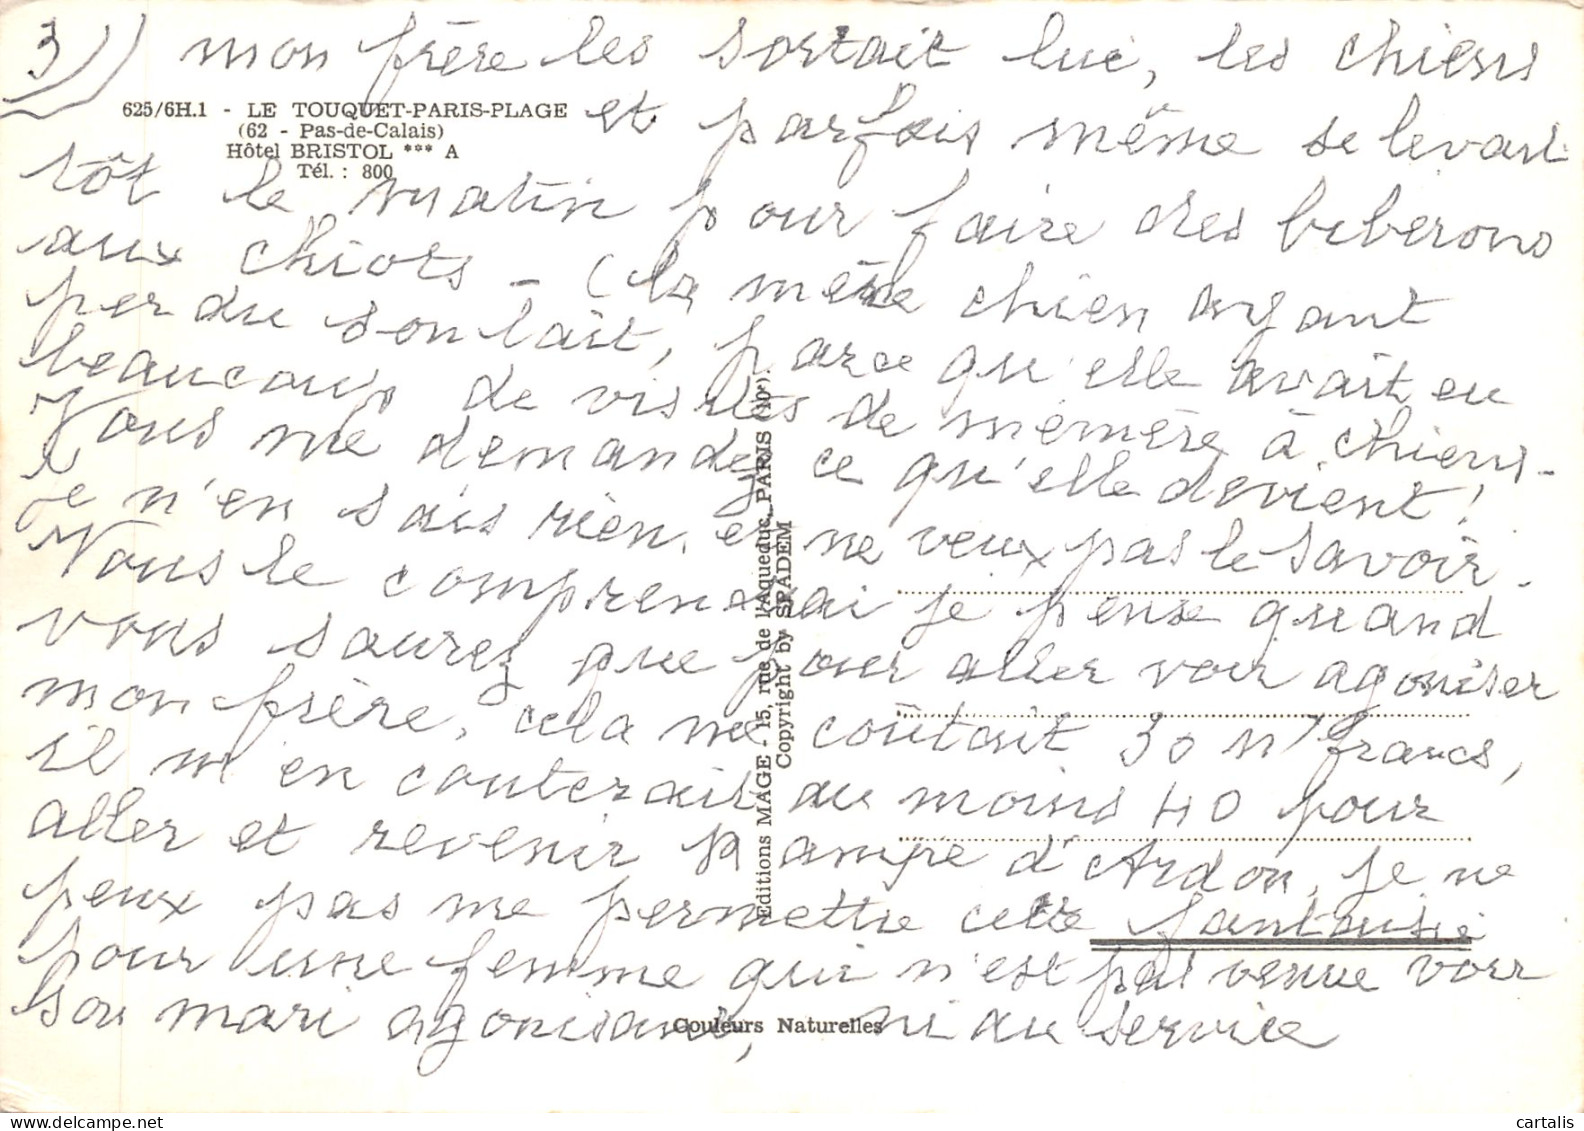 3)) mon frère les sortait lui, les chiens
625/6H.1 - LE TOUQUET-PARIS-PLAGE
(62 - Pas-de-Calais)
Hôtel BRISTOL *** A
Tél. : 800
et parfois même se levait
tôt le matin pour faire des biberons
aux chiots - (la mère chien ayant
perdu son lait, parce qu'elle avait eu
beaucoup de visites de mémère à chiens -
Vous me demandez ce qu'elle devient!
Je n'en sais rien, et ne veux pas le savoir -
Vous le comprendrai je pense quand
vous saurez que pour aller voir agoniser
mon frère, cela me coûtait 30 n francs,
il m'en couterait au moins 40 pour
aller et revenir d'Ardon, je ne
peux pas me permettre cette fantaisie
pour une femme qui n'est pas venue voir
son mari agonisant, ni au service
Editions MAGE - 15, rue de l'Aqueduc, PARIS (10e).
Copyright by SPADEM
Couleurs Naturelles
cartalis